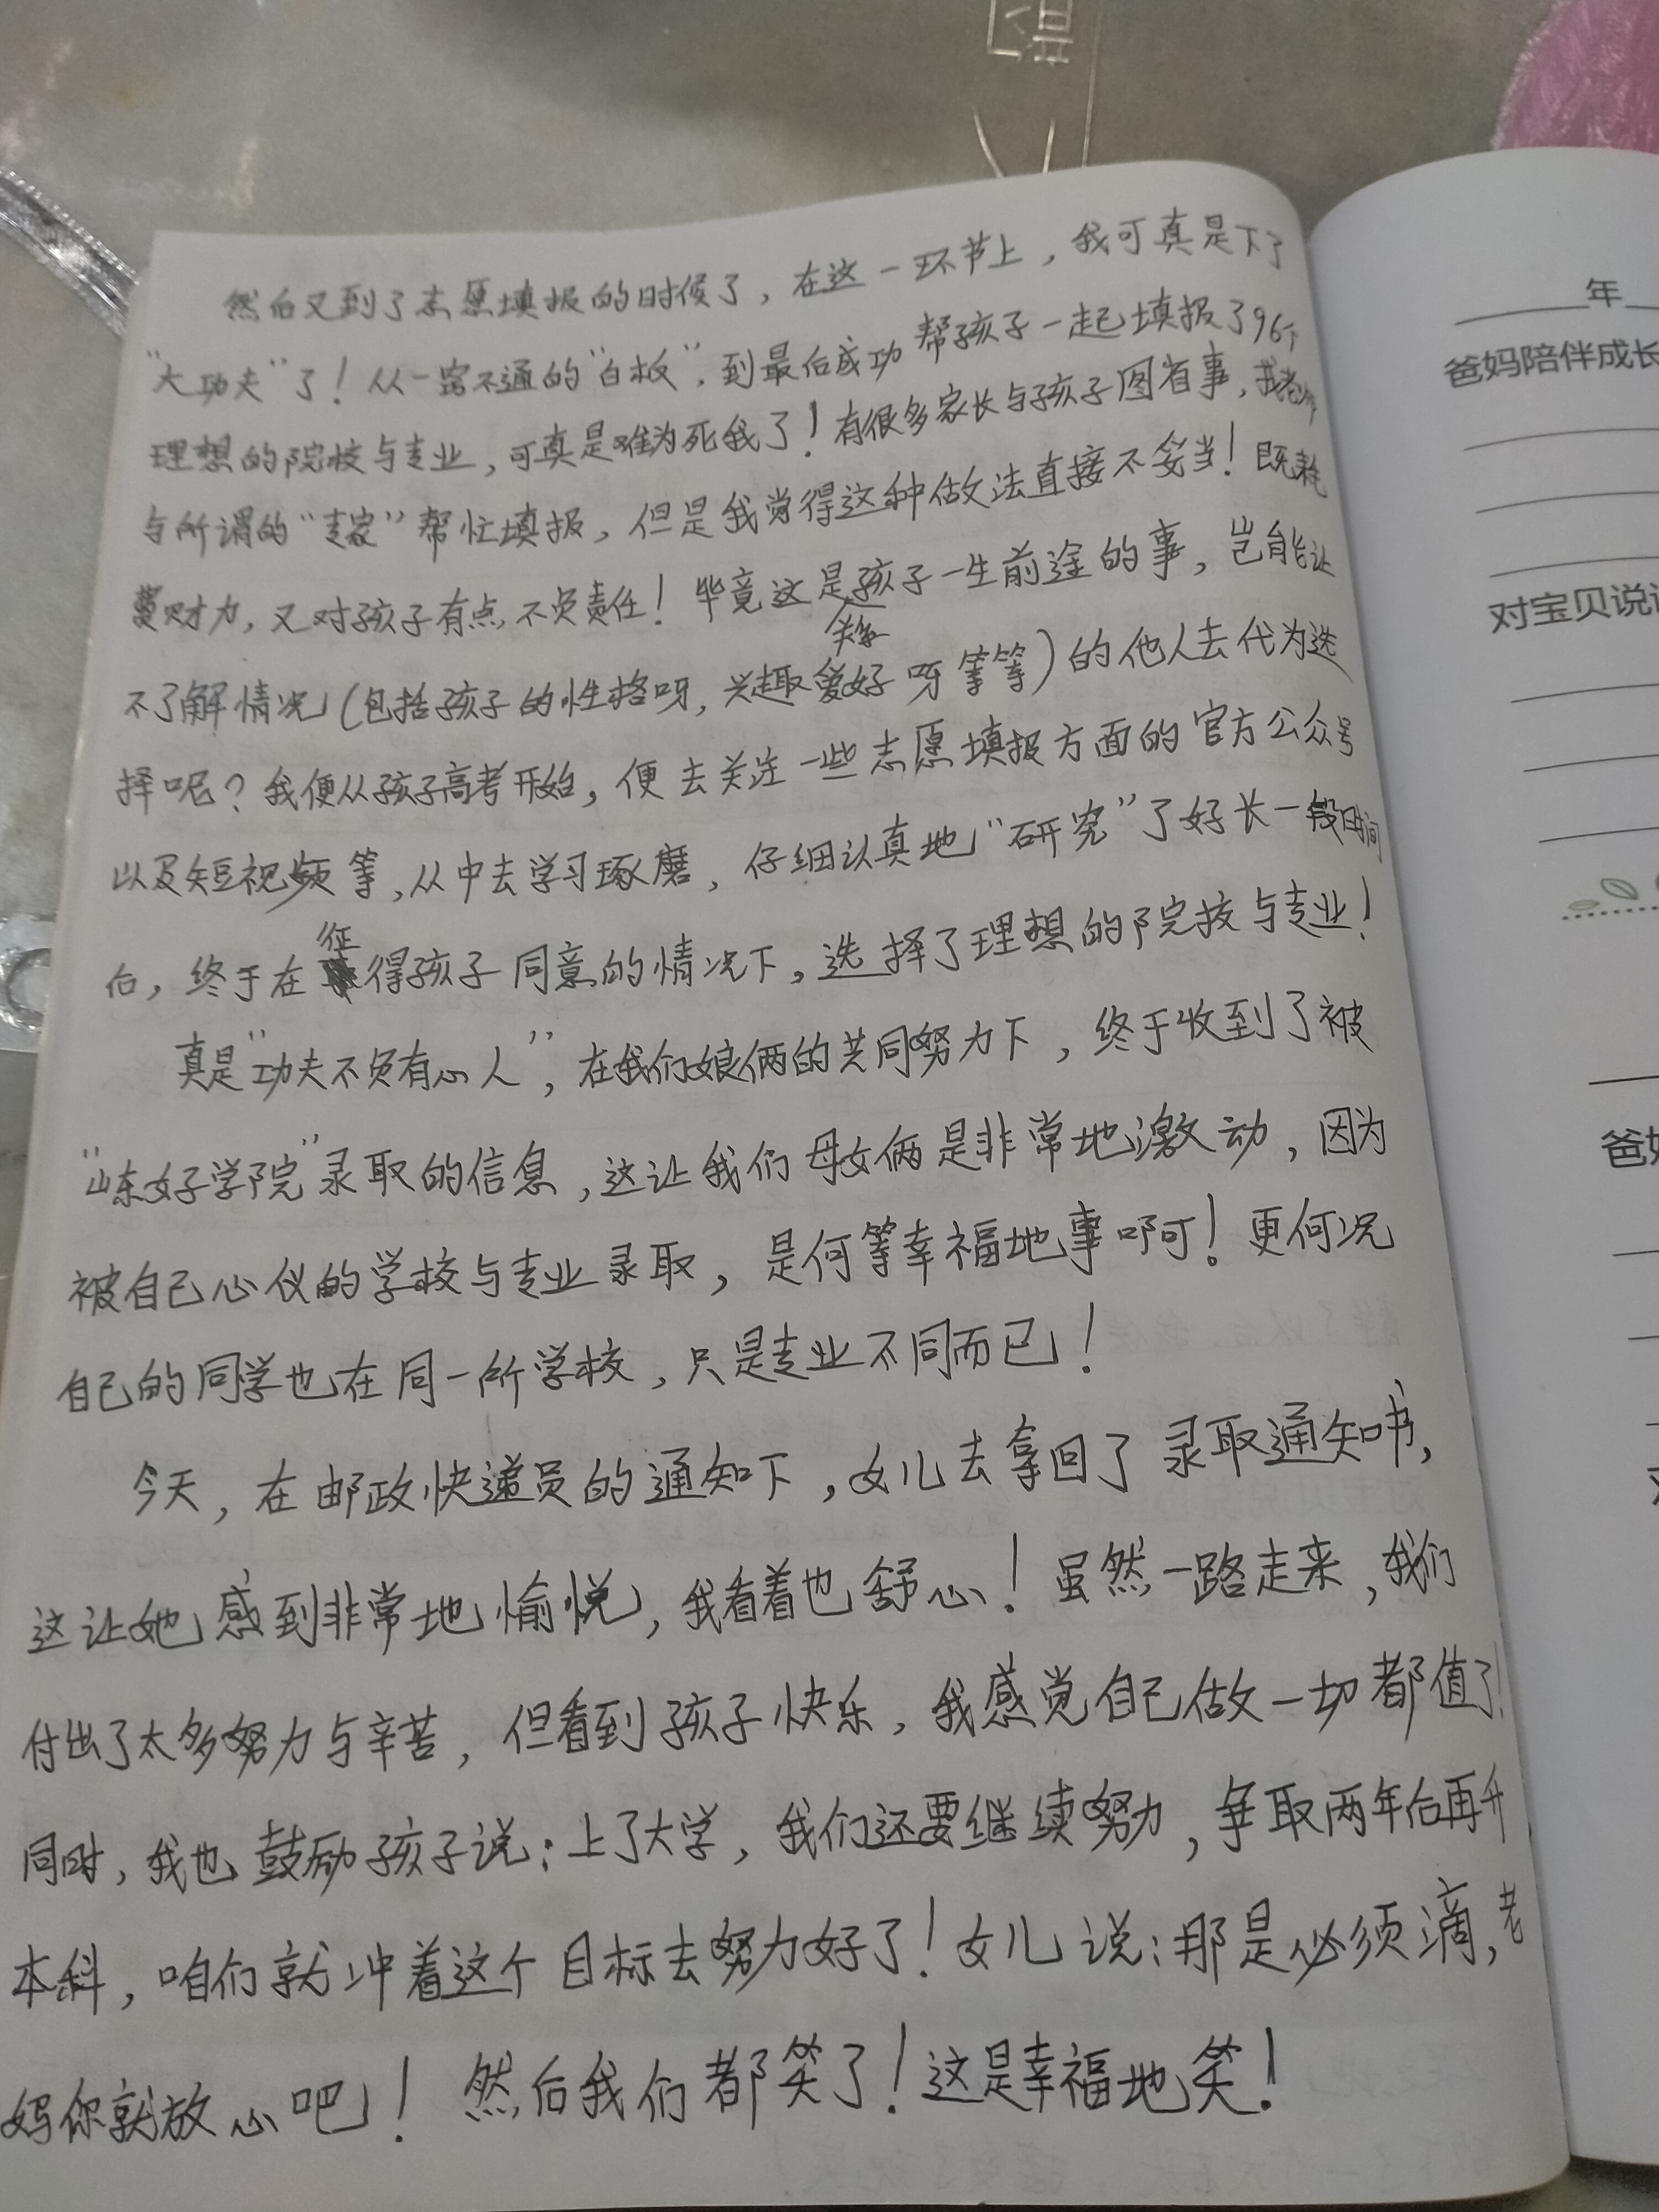 然后又到了志愿填报的时候了，在这一环节上，我可真是下了
“大功夫”了！从一窍不通的“白板”，到最后成功帮孩子一起填报了96个
理想的院校与专业，可真是难为死我了！有很多家长与孩子图省事，
与所谓的“专家”帮忙填报，但是我觉得这种做法直接不妥当！既耗
费财力，又对孩子有点不负责任！毕竟这是关系孩子一生前途的事，岂能让
不了解情况（包括孩子的性格呀，兴趣爱好呀等等）的他人去代为选
择呢？我便从孩子高考开始，便去关注一些志愿填报方面的官方公众号
以及短视频等，从中去学习琢磨，仔细认真地“研究”了好长一段时间
后，终于在征得孩子同意的情况下，选择了理想的院校与专业！
真是“功夫不负有心人”，在我们娘俩的共同努力下，终于收到了被
“山东好学院”录取的信息，这让我们母女俩是非常地激动，因为
被自己心仪的学校与专业录取，是何等幸福地事啊！更何况
自己的同学也在同一所学校，只是专业不同而已！
今天，在邮政快递员的通知下，女儿去拿回了录取通知书，
这让她感到非常地愉悦，我看着也舒心！虽然一路走来，我们
付出了太多努力与辛苦，但看到孩子快乐，我感觉自己做一切都值了！
同时，我也鼓励孩子说：上了大学，我们还要继续努力，争取两年后再升
本科，咱们就冲着这个目标去努力好了！女儿说：那是必须滴，老
妈你就放心吧！然后我们都笑了！这是幸福地笑！
年
爸妈陪伴成长
对宝贝说
爸妈